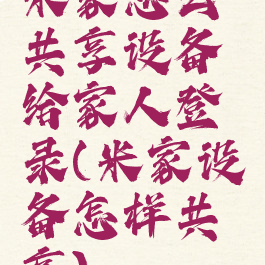 米家怎么
共享设备
给家人登
录(米家设
备怎样共
享)